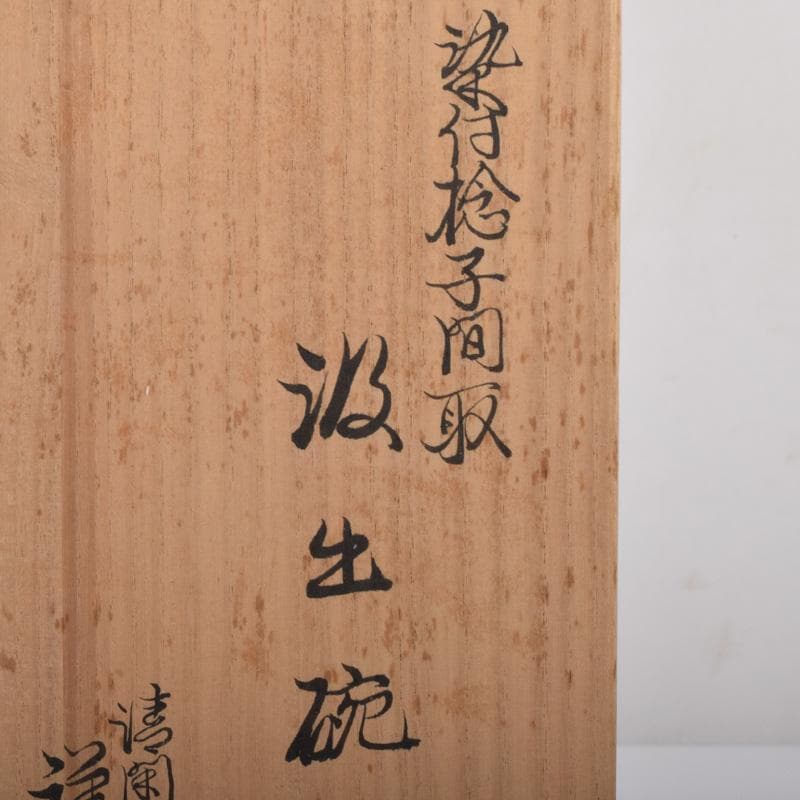 染付捻子間取
汲出碗
清閑
祥